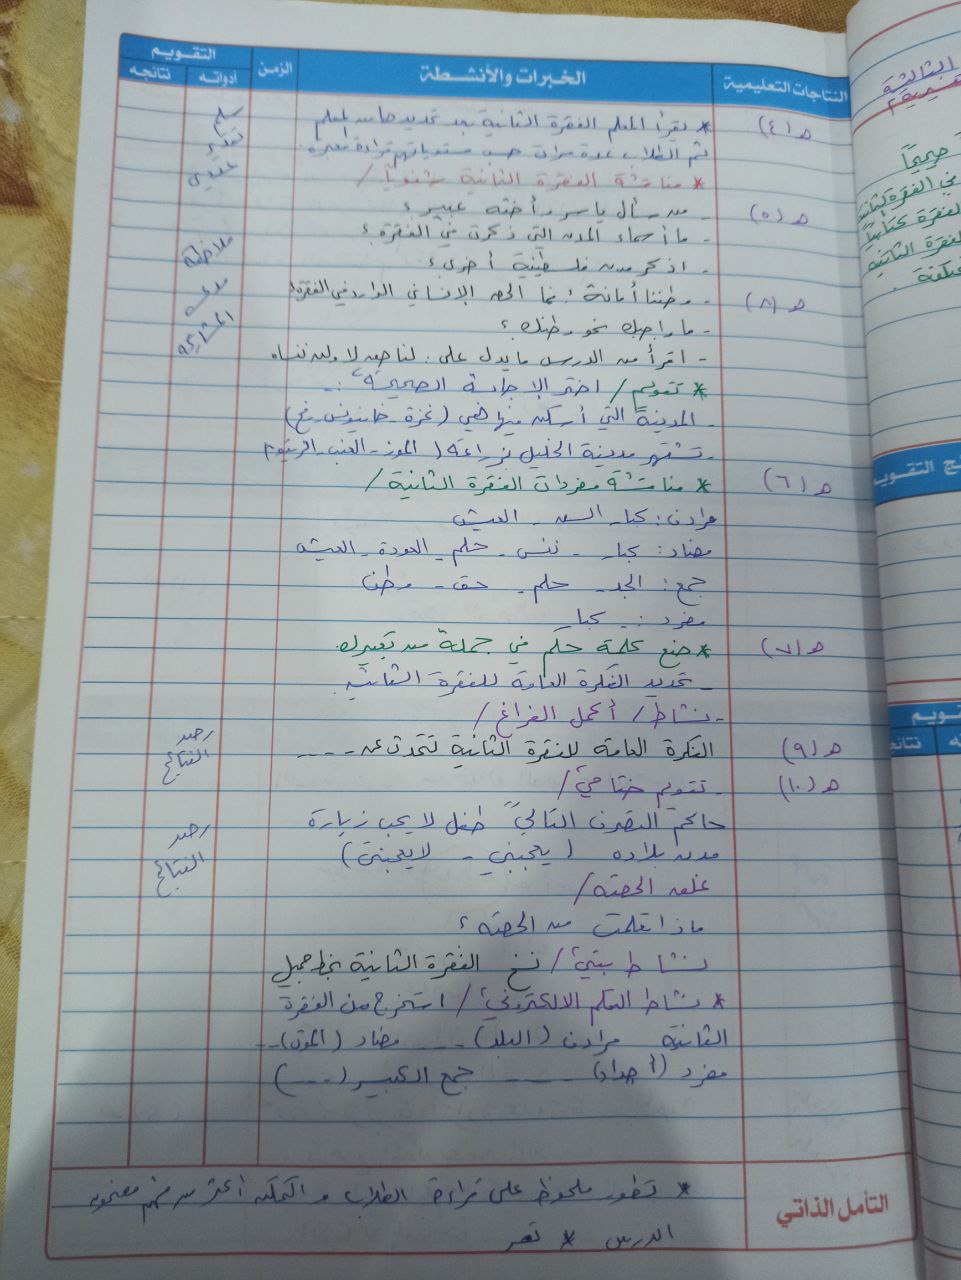 النتاجات التعليمية
الخبرات والأنشطة
الزمن
التقويم
أدواته
نتائجه
هـ (٤)
* يقرأ المعلم الفقرة الثانية بعد تحديدها من المعلم
ثم الطلاب عدة مرات حسب مستوياتهم قراءة معبرة
سلم
تقدير
عددي
* مناقشة الفقرة الثانية شفوياً /
هـ (٥)
- من سأل ياسر وأخته عبير؟
- ما أسماء المدن التي ذكرت في الفقرة؟
ملاحظة
- اذكر مدن فلسطينية أخرى؟
هـ (٨)
- وطننا أمانة؛ فما الحس الإنساني الوارد في الفقرة؟
مدى
المشاركة
- ما واجبك نحو وطنك؟
- اقرأ من الدرس ما يدل على: لنا حق لا ولن ننساه
* تقويم / اختر الإجابة الصحيحة:
المدينة التي أسكن فيها هي (غزة - خانيونس - رفح)
- تشتهر مدينة الخليل بزراعة (الموز - العنب - الزيتون)
هـ (٦)
* مناقشة مفردات الفقرة الثانية /
مرادف: كبار السن - العيش
مضاد: كبار - ننسى - حلم - العودة - العيش
جمع: الجد - حلم - حق - وطن
مفرد: - كبار
هـ (٧)
* ضع كلمة حلم في جملة من تعبيرك.
- تحديد الفكرة العامة للفقرة الثانية.
- نشاط / أكمل الفراغ /
هـ (٩)
الفكرة العامة للفقرة الثانية تتحدث عن - - - -
رصد
النتائج
هـ (١٠)
- تقويم ختامي /
حاكم التصرف التالي: طفل لا يحب زيارة
مدن بلاده (يعجبني - لا يعجبني)
رصد
النتائج
غلق الحصة /
ماذا تعلمت من الحصة؟
نشاط بيتي / نسخ الفقرة الثانية بخط جميل
* نشاط التعلم الالكتروني / استخرج من الفقرة
الثانية مرادف (البلد) - - - مضاد (الموت) - - -
مفرد (أجداد) - - - جمع الكبير (- - -)
التأمل الذاتي
* تطور ملحوظ على قراءة الطلاب و
الدرس *
الثالثة
صحيحاً
في الفقرة الثانية
الفقرة كتابياً
الفقرة الثانية
التقويم